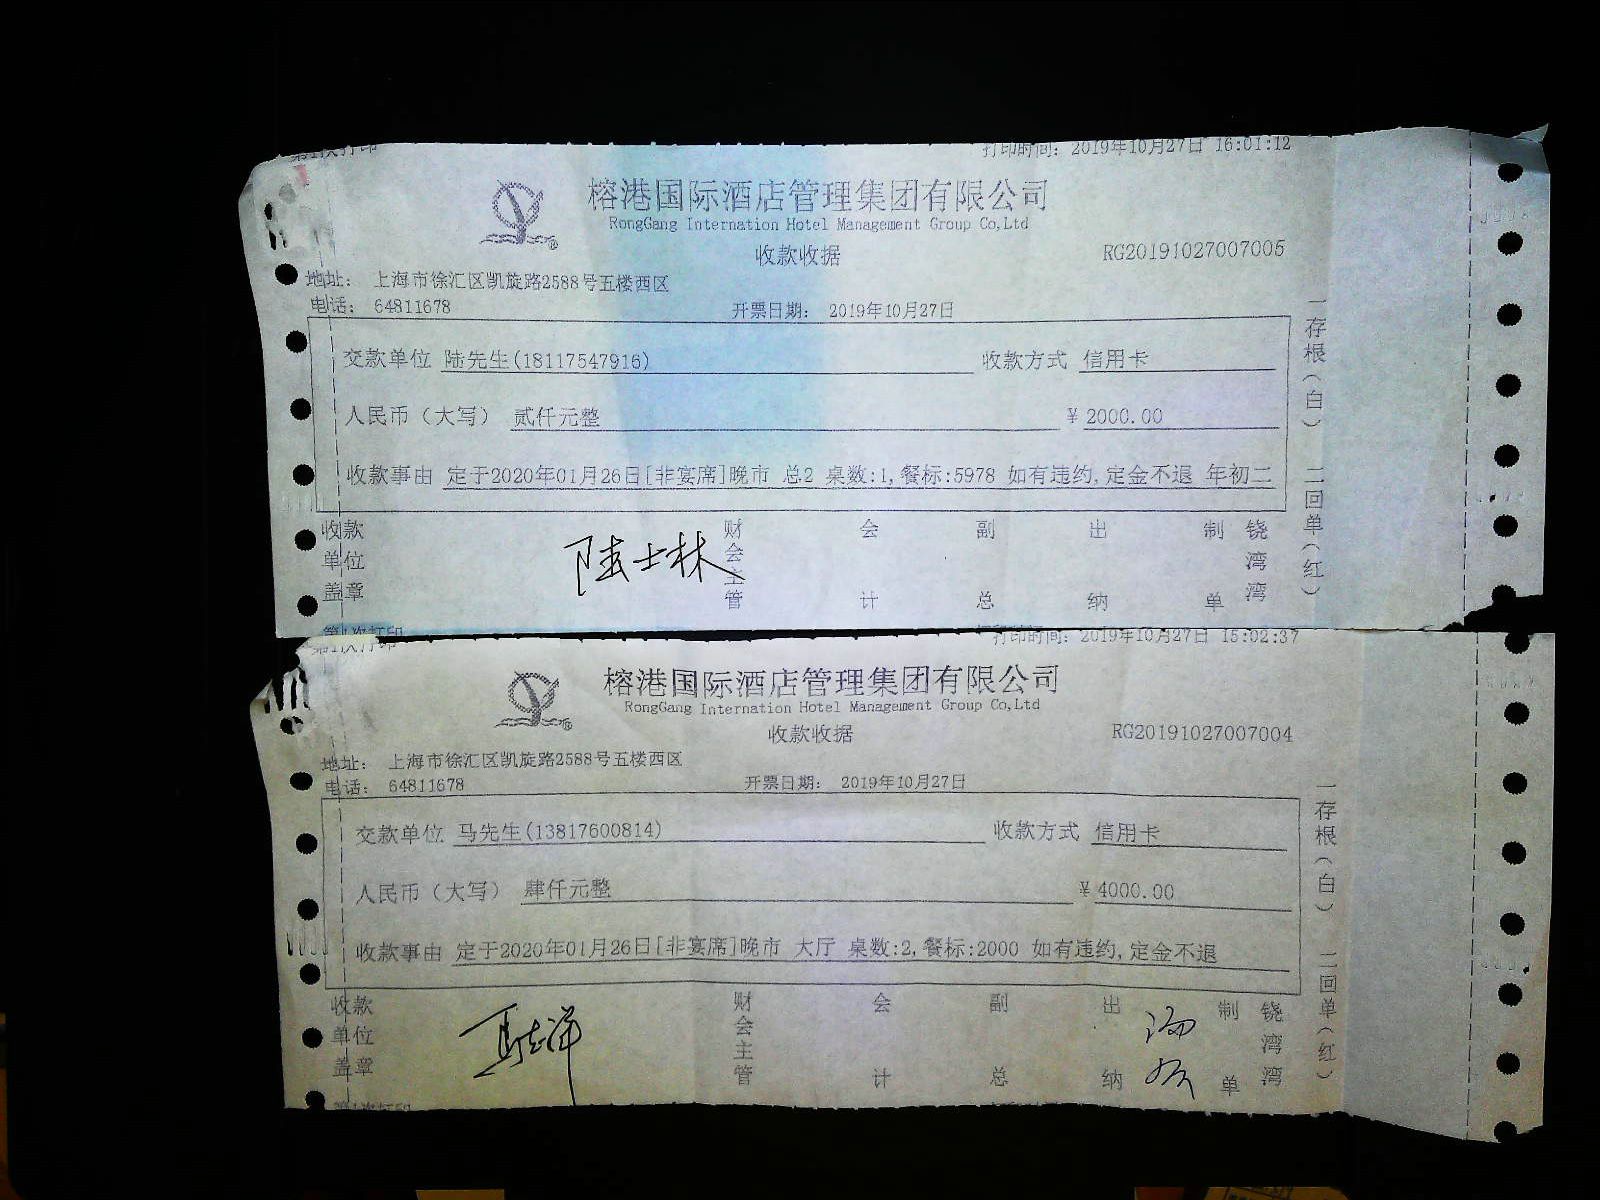 第1次打印 打印时间: 2019年10月27日 16:01:12
榕港国际酒店管理集团有限公司
RongGang Internation Hotel Management Group Co,Ltd
收款收据 RG20191027007005
地址: 上海市徐汇区凯旋路2588号五楼西区
电话: 64811678 开票日期: 2019年10月27日
交款单位 陆先生(18117547916) 收款方式 信用卡
人民币(大写) 贰仟元整 ¥ 2000.00
收款事由 定于2020年01月26日[非宴席]晚市 总2 桌数:1,餐标:5978 如有违约,定金不退 年初二
收款单位盖章 陆士林 财会主管 会计 副总 出纳 制单 铙湾湾
一存根(白) 二回单(红)
第1次打印 打印时间: 2019年10月27日 15:02:37
榕港国际酒店管理集团有限公司
RongGang Internation Hotel Management Group Co,Ltd
收款收据 RG20191027007004
地址: 上海市徐汇区凯旋路2588号五楼西区
电话: 64811678 开票日期: 2019年10月27日
交款单位 马先生(13817600814) 收款方式 信用卡
人民币(大写) 肆仟元整 ¥ 4000.00
收款事由 定于2020年01月26日[非宴席]晚市 大厅 桌数:2,餐标:2000 如有违约,定金不退
收款单位盖章 财会主管 会计 副总 出纳 制单 铙湾湾
一存根(白) 二回单(红)
第1次打印